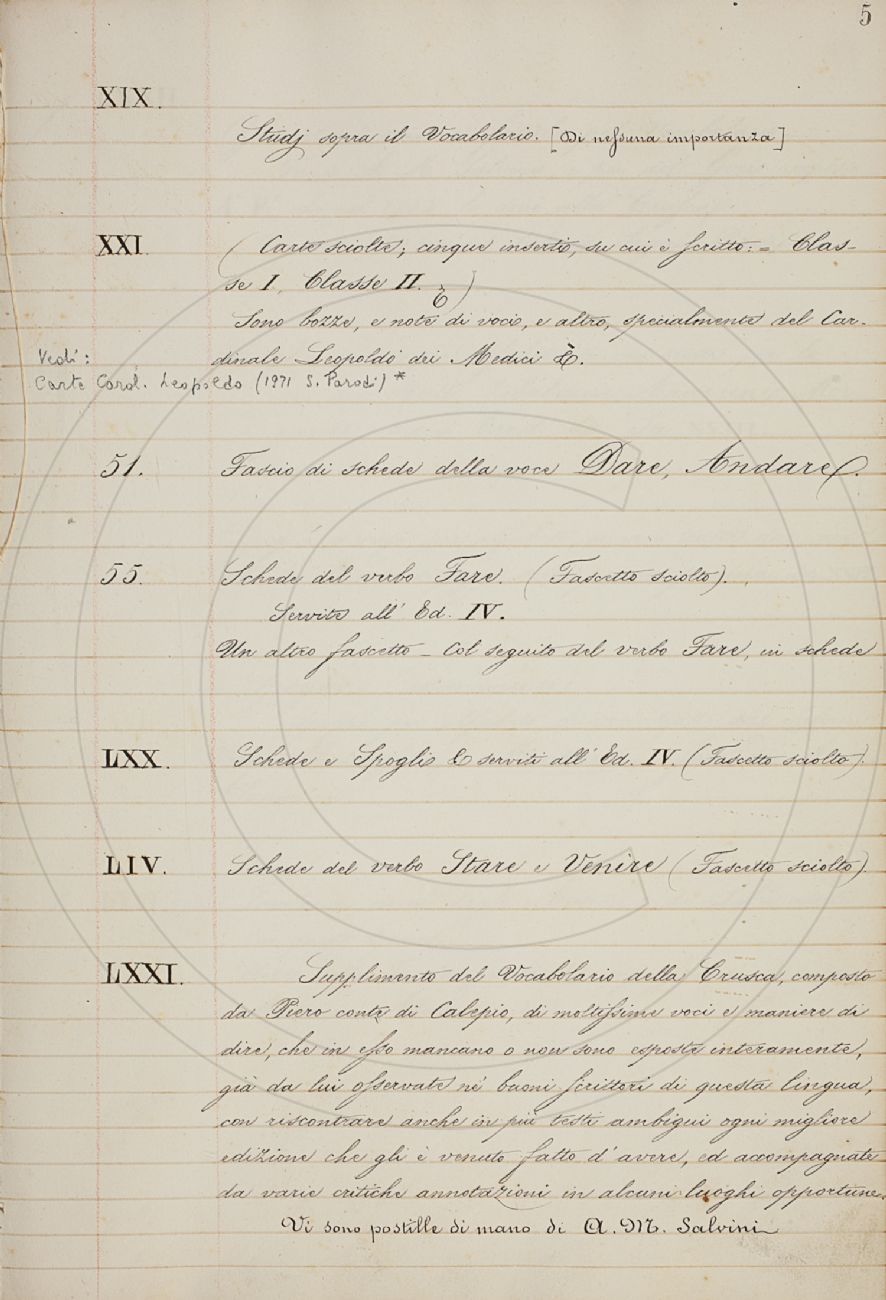 5
XIX.
Studj sopra il Vocabolario. [Di nessuna importanza]
XXI. (Carte sciolte; cinque inserti, su cui è scritto: = Clas-
se I, Classe II. &)
Sono bozze, e note di voci, e altro, specialmente del Car-
dinale Leopoldo dei Medici &.
Vedi:
Carte Card. Leopoldo (1971 S. Parodi) *
51. Fascio di schede della voce Dare, Andare.
55. Schede del verbo Fare. (Fascetto sciolto).
Servite all' Ed. IV.
Un altro fascetto - Col seguito del verbo Fare, in schede
LXX. Schede e Spogli & serviti all' Ed. IV. (Fascetto sciolto).
LIV. Schede del verbo Stare e Venire (Fascetto sciolto)
LXXI. Supplimento del Vocabolario della Crusca, composto
da Piero conte di Calepio, di moltissime voci e maniere di
dire, che in esso mancano o non sono esposte interamente,
già da lui osservate né buoni scrittori di questa lingua,
con riscontrare anche in più testi ambigui ogni migliore
edizione che gli è venuto fatto d'avere, ed accompagnate
da varie critiche annotazioni in alcuni luoghi opportune.
Vi sono postille di mano di A. M. Salvini